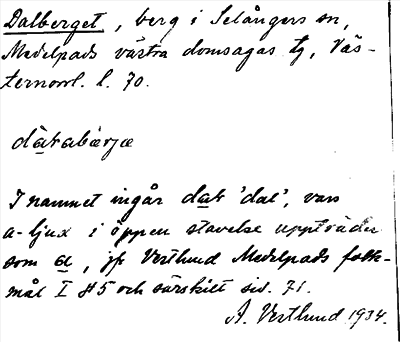 Dalberget, berg i Selångers sn,
Medelpads västra domsagas tg, Väs-
ternorrl. l. 70.
dàtabærjæ
I namnet ingår dat 'dal', vars
a-ljux i öppen stavelse uppträder
som a, jfr Vestlund Medelpads folk-
mål I § 5 och särskilt sid. 71.
A. Vestlund 1934.